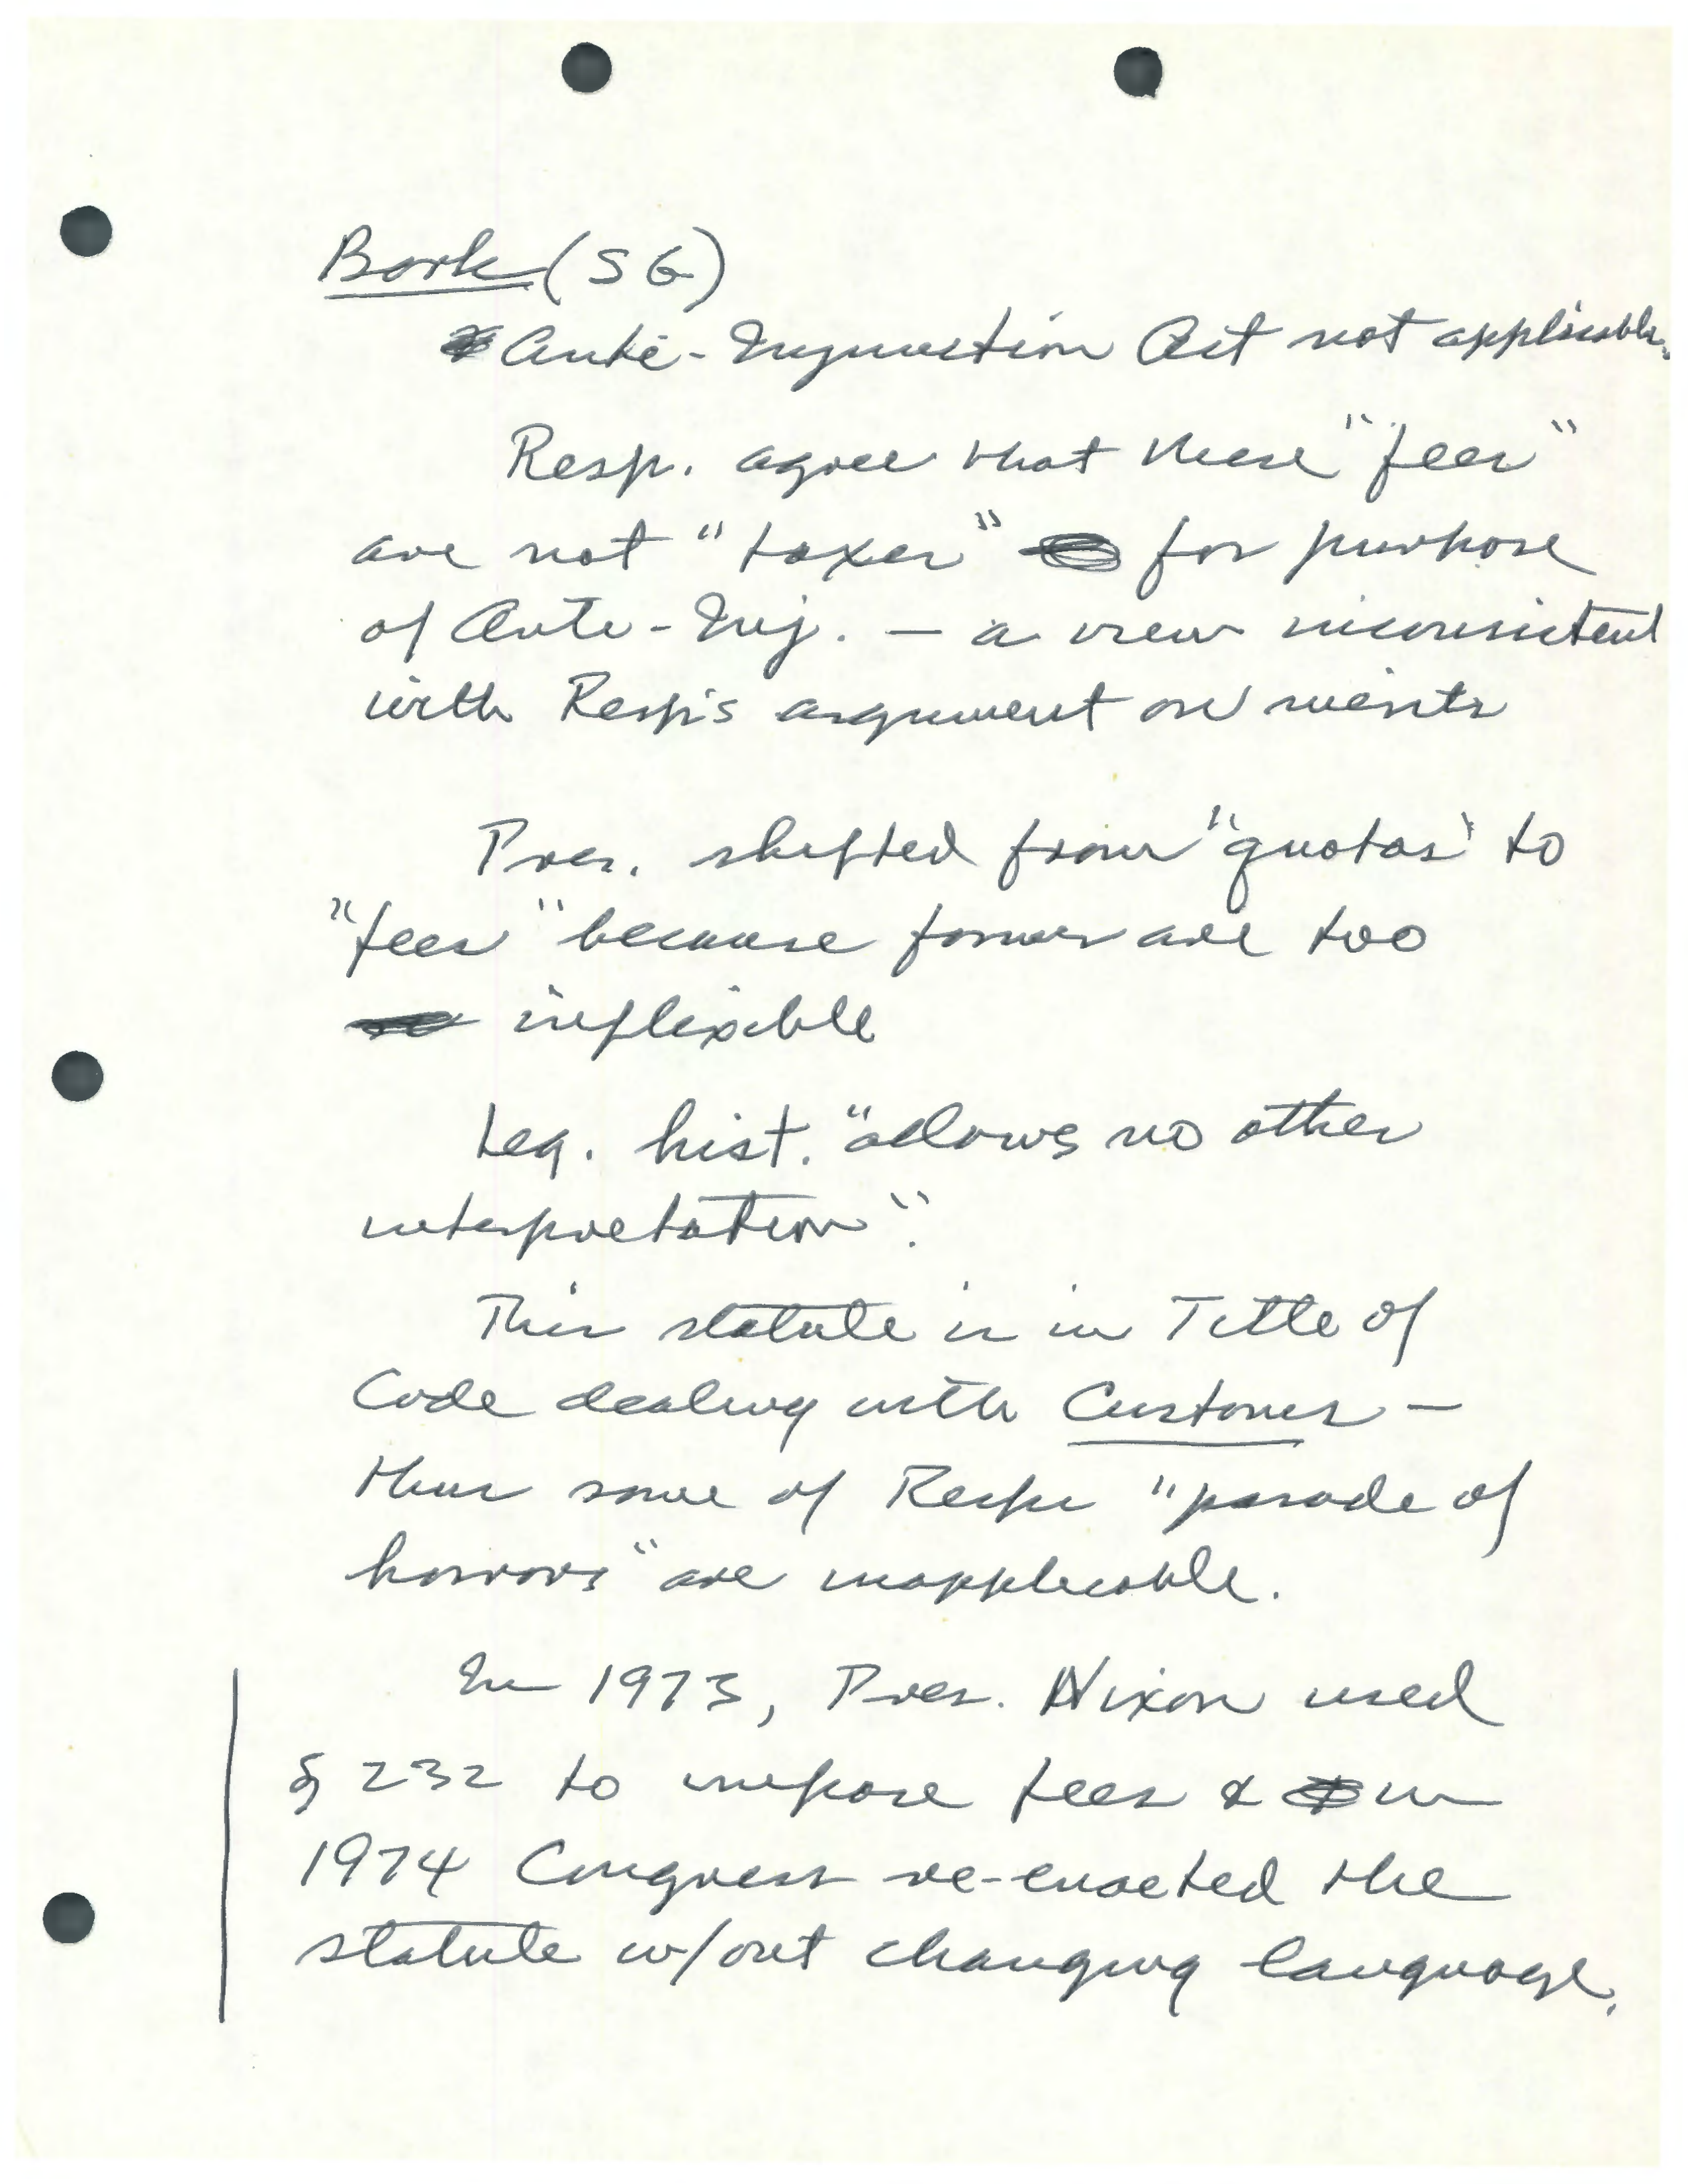 Bork (SG)
Anti-Injunction Act not applicable.
Resp. agree that these "fees"
are not "taxes" for purpose
of Anti-Inj. — a view inconsistent
with Resp's argument on merits
Pres. shifted from "quotas' to
"fees" because former are too
inflexible
Leg. hist. "allows no other
interpretation".
This statute is in Title of
Code dealing with Customs —
thus some of Resps "parade of
horrors" are inapplicable.
In 1973, Pres. Nixon used
§ 232 to impose fees & in
1974 Congress re-enacted the
statute w/out changing language.